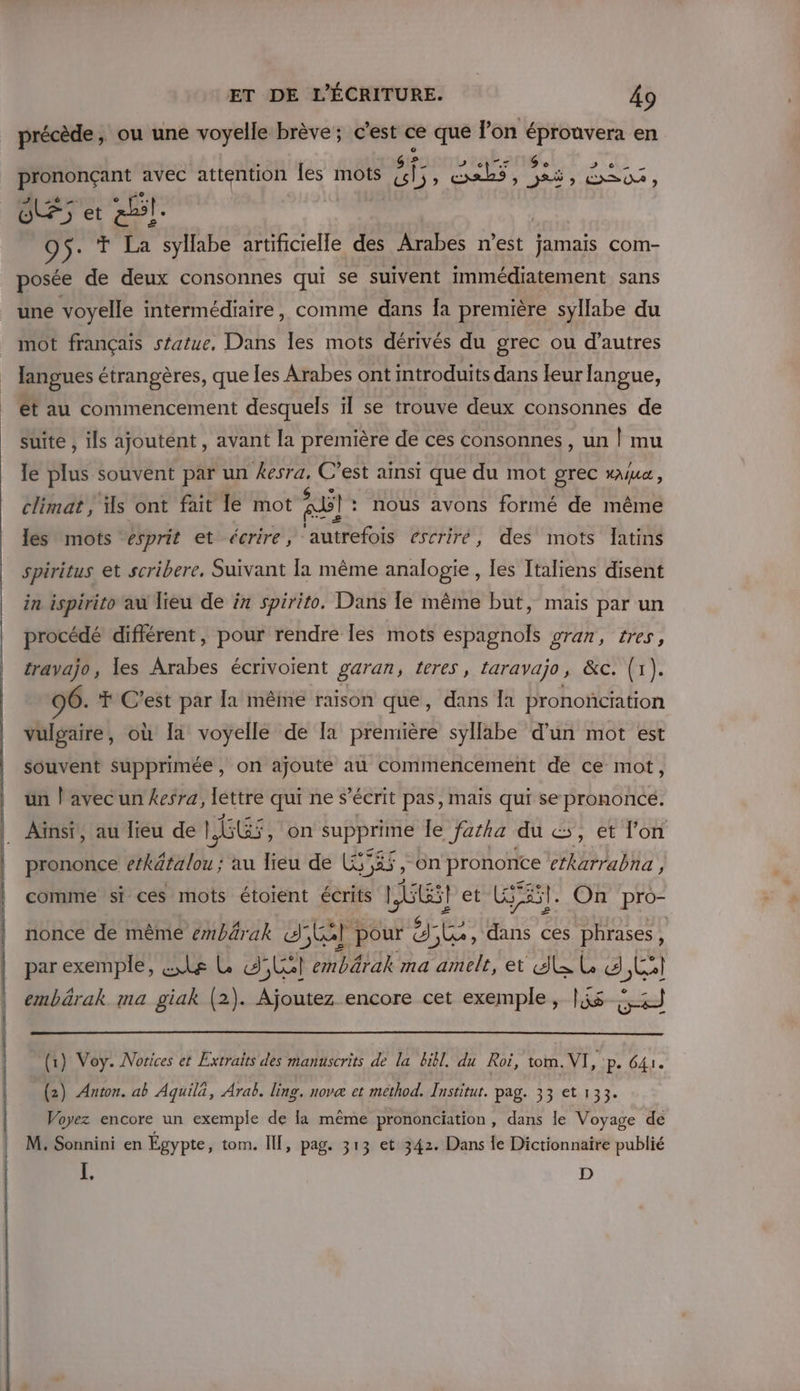 ET DE L'ÉCRITURE. 49
précède, ou une voyelle brève; c'est ce que l'on éprouvera en
prononçant avec attention les mots
et
95. † La syllabe artificielle des Arabes n'est jamais com-
posée de deux consonnes qui se suivent immédiatement sans
une voyelle intermédiaire, comme dans la première syllabe du
mot français statue. Dans les mots dérivés du grec ou d'autres
langues étrangères, que les Arabes ont introduits dans leur langue,
et au commencement desquels il se trouve deux consonnes de
suite, ils ajoutent, avant la première de ces consonnes, un ا mu
le plus souvent par un kesra. C'est ainsi que du mot grec κλίμα,
climat, ils ont fait le mot إِقْلِيمٌ : nous avons formé de même
les mots esprit et écrire, autrefois escrire, des mots latins
spiritus et scribere. Suivant la même analogie, les Italiens disent
in ispirito au lieu de in spirito. Dans le même but, mais par un
procédé différent, pour rendre les mots espagnols gran, tres,
travajo, les Arabes écrivoient garan, teres, taravajo, &c. (1).
96. † C'est par la même raison que, dans la prononciation
vulgaire, où la voyelle de la première syllabe d'un mot est
souvent supprimée, on ajoute au commencement de ce mot,
un ا avec un kesra, lettre qui ne s'écrit pas, mais qui se prononce.
Ainsi, au lieu de تَقَاتَلُوا, on supprime le fatha du ت, et l'on
prononce etkâtalou; au lieu de تَقَرَّبْنَا, on prononce etkarrabna,
comme si ces mots étoient écrits إِتْقَاتَلُوا et إِتْقَرَّبْنَا. On pro-
nonce de même embârak إمبارك pour مُبَارَك, dans ces phrases,
par exemple, إمبارك ما عملت embârak ma amelt, et إمبارك ما جاك
embârak ma giak (2). Ajoutez encore cet exemple,
(1) Voy. Notices et Extraits des manuscrits de la bibl. du Roi, tom. VI, p. 641.
(2) Anton. ab Aquilâ, Arab. ling. novæ et method. Institut. pag. 33 et 133.
Voyez encore un exemple de la même prononciation, dans le Voyage de
M. Sonnini en Égypte, tom. III, pag. 313 et 342. Dans le Dictionnaire publié
I. D